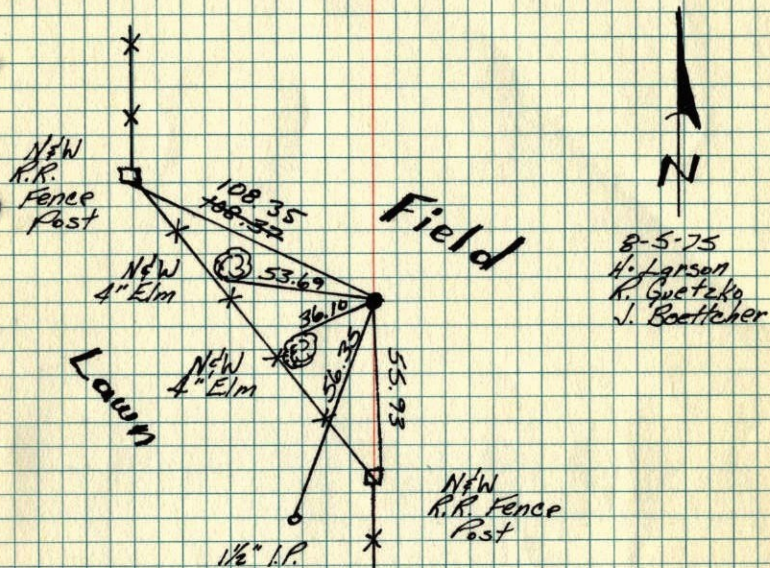 N&W
R.R.
Fence
Post
108.35
108.37
Field
N
8-5-75
H. Larson
R. Guetzko
J. Boettcher
N&W
4" Elm
53.69
36.10
N&W
4" Elm
56.35
55.93
Lawn
N&W
R.R. Fence
Post
1½" I.P.